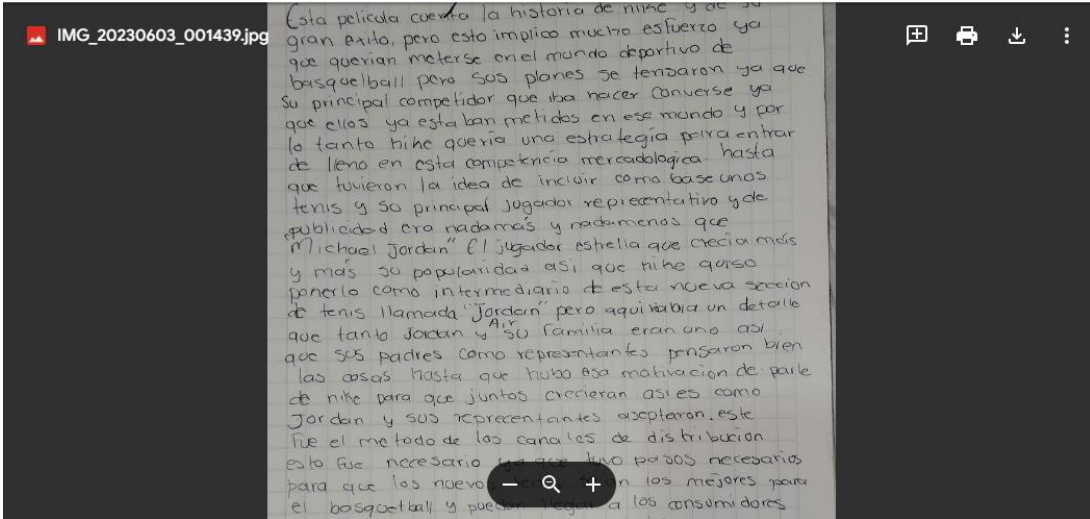 IMG_20230603_001439.jpg
Esta pelicula cuenta la historia de nike y de su
gran exito, pero esto implico mucho esfuerzo ya
que querian meterse en el mundo deportivo de
basquelball pero sus planes se tensaron ya que
su principal competidor que iba hacer converse ya
que ellos ya estaban metidos en ese mundo y por
lo tanto nike queria una estrategía para entrar
de lleno en esta competencia mercadologica. hasta
que tuvieron la idea de incluir como base unos
tenis y su principal jugador reprecentativo y de
publicidad era nadamás y nadamenos que
"Michael Jordan" El jugador estrella que crecia más
y más su popularidad asi, que nike quiso
ponerlo como intermediario de esta nueva seccion
de tenis llamada "Jordan" pero aqui habia un detalle
Air
que tanto Jordan y su familia eran uno asi
que sus padres como representantes pensaron bien
las cosas hasta que hubo esa motivacion de parte
de nike para que juntos crecieran asi es como
Jordan y sus reprecentantes aseptaron. este
Fue el metodo de los canales de distribucion
esto fue necesario ya que tuvo pasos necesarios
para que los nuevos los mejores para
el basquetball y puedan llegar a los consumidores